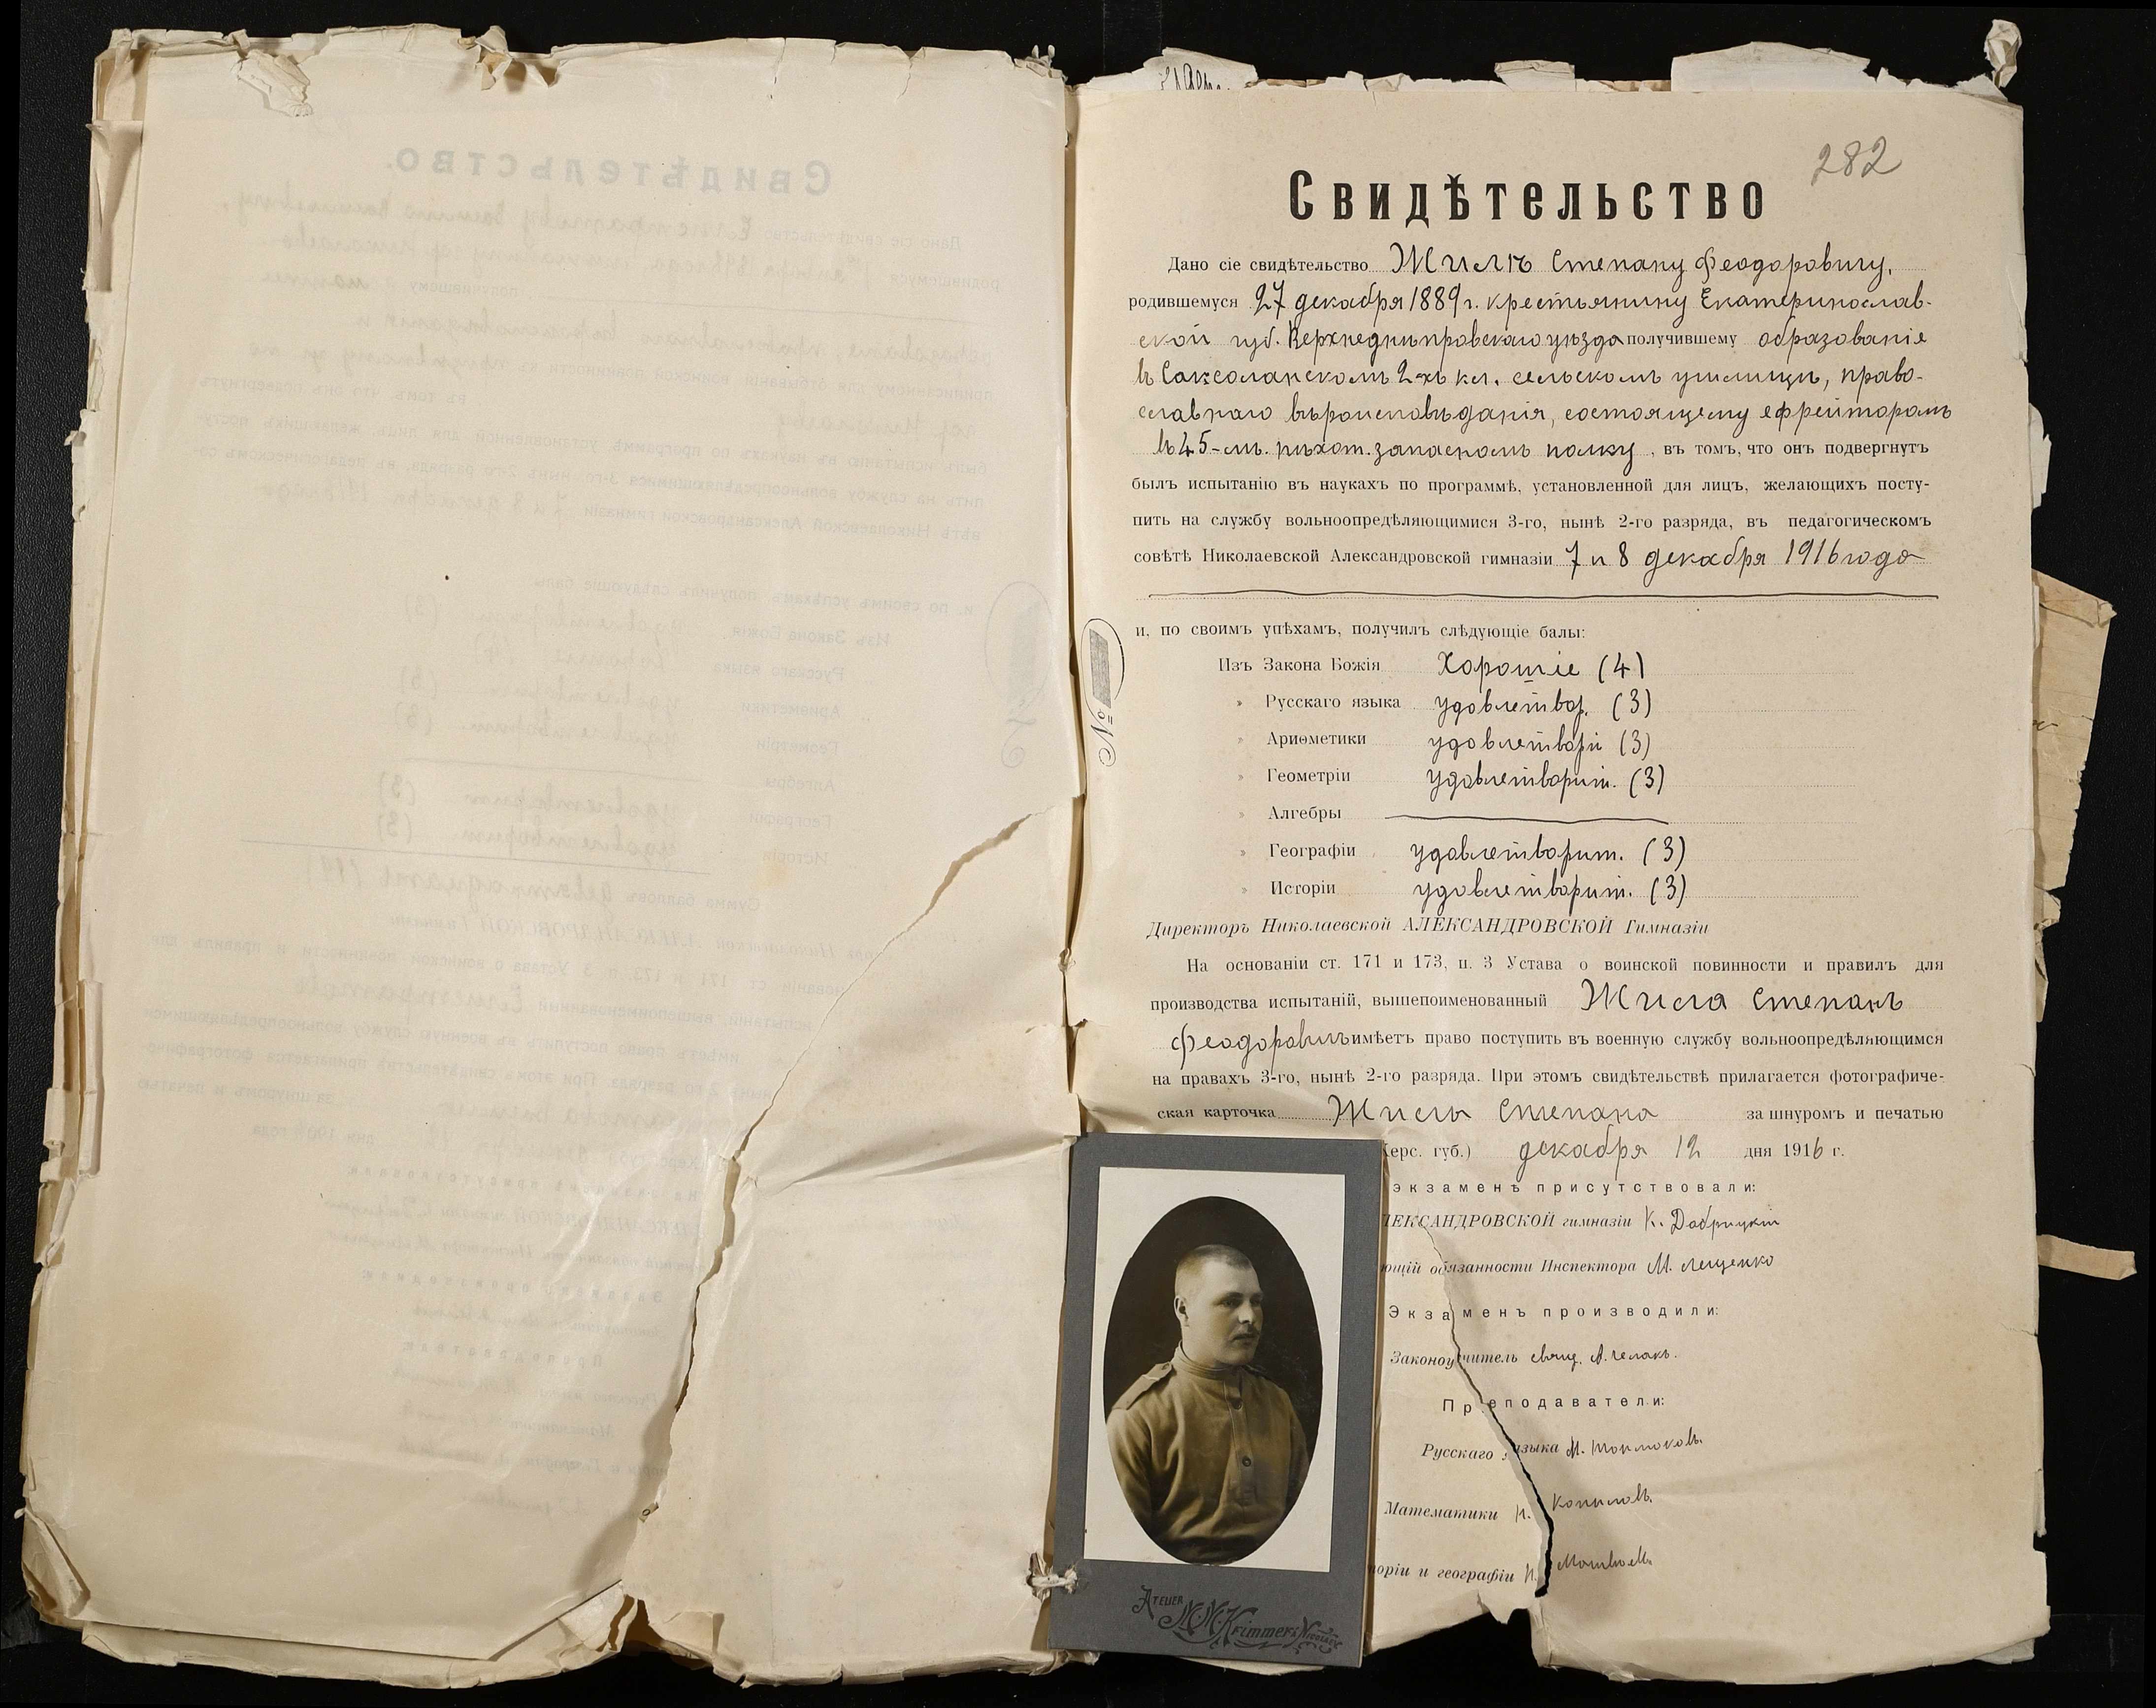 282
Свидѣтельство
Дано сіе свидѣтельство Жилѣ Степану Феодоровичу,
родившемуся 27 декабря 1889 г. крестьянину Екатеринослав-
ской губ. Верхнеднѣпровскаго уѣзда получившему образованіе
въ Саксоганскомъ 2-хъ кл. сельскомъ училищѣ, право-
славнаго вѣроисповѣданія, состоящему ефрейторомъ
въ 45-мъ пѣхот. запасномъ полку, въ томъ, что онъ подвергнутъ
былъ испытанію въ наукахъ по программѣ, установленной для лицъ, желающихъ посту-
пить на службу вольноопредѣляющимися 3-го, нынѣ 2-го разряда, въ педагогическомъ
совѣтѣ Николаевской Александровской гимназіи 7 и 8 декабря 1916 года
и, по своимъ упѣхамъ, получилъ слѣдующіе балы:
№
Изъ Закона Божія Хорошіе (4)
" Русскаго языка удовлетвор. (3)
" Ариѳметики удовлетвори (3)
" Геометріи удовлетворит. (3)
" Алгебры
" Географіи удовлетворит. (3)
" Исторіи удовлетворит. (3)
Директоръ Николаевской АЛЕКСАНДРОВСКОЙ Гимназіи
На основаніи ст. 171 и 173, п. 3 Устава о воинской повинности и правилъ для
производства испытаній, вышепоименованный Жила Степанъ
Феодоровичъ имѣетъ право поступить въ военную службу вольноопредѣляющимся
на правахъ 3-го, нынѣ 2-го разряда. При этомъ свидѣтельствѣ прилагается фотографиче-
ская карточка Жилы Степана за шнуромъ и печатью
Херс. губ.) декабря 12 дня 1916 г.
экзаменѣ присутствовали:
ЛЕКСАНДРОВСКОЙ гимназіи К. Добрицкій
ющій обязанности Инспектора М. Лещенко
Экзаменъ производили:
Законоучитель свящ. А. Челакъ.
Преподаватели:
Русскаго языка М.
Математики Н. Копыловъ.
торіи и географіи Н.
ATELIER N. N. Krimmer & NICOLAEV